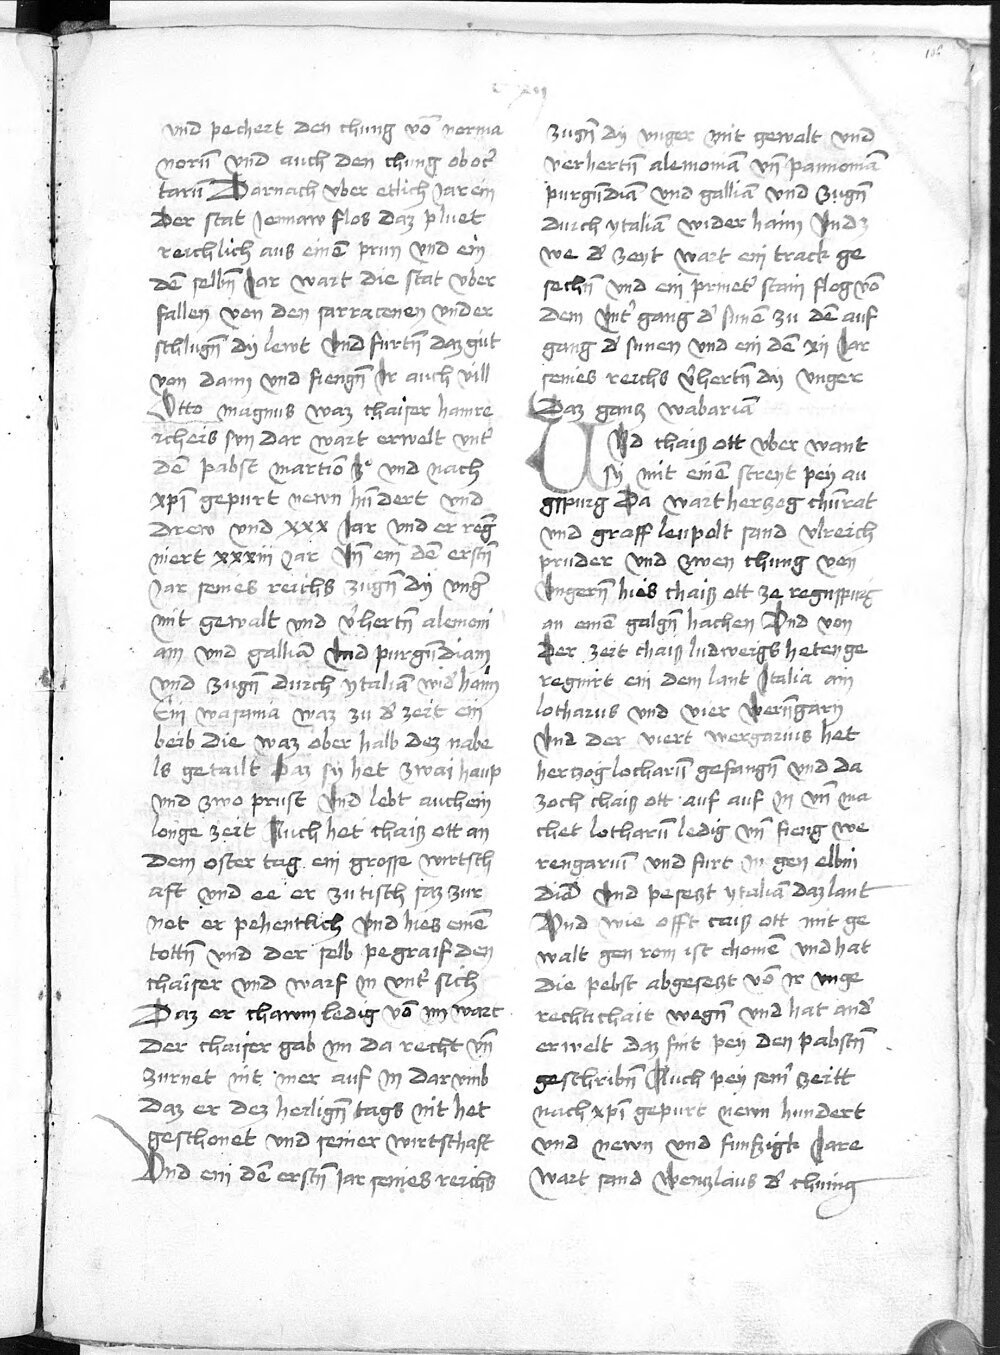 106
und pechert den chung vō norma
norū vnd auch den chung oboť
tarū Darnach vber etlich Jar ein
Der stat Jennaw flos daz pluet
reichlich aus einē prun vnd ein
dē selbñ Jar wart die stat vber
fallen von den sarracenen vnder
schlugñ dy lewt vnd furtñ daz gut
von dann vnd fiengñ Jr auch vill
Otto magnus waz chaiser hainre
icheis sun dar wart erwelt vnť
dē pabst martiō vnd nach
xpi gepurt newn hundert vnd
Drew vnd xxx Jar vnd er reg̃
niert xxxiii Jar Jn̄ ein dē erstñ
Jar seines reichs zugñ dy vnger
mit gewalt vnd v̓hertñ alemoni
am vnd galliā vnd purgñdiam
vnd zugñ durch ytaliā wid̓ haim
Ein wasania waz zu d̓ zeit ein
beib die waz ober halb dez nabe
ls getailt Daz sy het zwai haup
vnd zwo prust vnd lebt auch ein
longe zeit Auch het chaiß ott an
dem oster tag ein grosse wirtsch
aft vnd ee er zu tisch saz zur
net er pehentlich vnd hies einē
tottñ vnd der selb pegraif den
chaiser vnd warf in vnť sich
Daz er chawm ledig vō im wart
Der chaiser gab im da recht vn̄
zurnet nit mer auf in darumb
Daz er dez heiligñ tags nit het
geschonet vnd seiner wirtschaft
Vnd ein dē erstñ Jar seines reichs
zugñ dy vnger mit gewalt vnd
verhertñ alemoniā vn̄ pannoniā
purgñdiā vnd galliā vnd zugñ
durch ytaliā wider haim Vnd z
we d̓ zeyt wart ein track ge
sechñ vnd ein prineť stain flog vō
dem vnť gang d̓ sunē zu dē auf
gang d̓ sunen vnd ein dē xii Jar
seines reichs v̓hertñ dy vnger
Daz gantz wabariā
Vnd chaiß ott vber want
sy mit einē streyt pey au
gspurg Da wart hertzog chūrat
vnd graff leupolt sand vlreich
pruder vnd zwen chung von
vngerñ hies chaiß ott ze regnspurg
an einē galgñ hachen Vnd von
Der zeit chaiß ludweigs heten ge
regnirt ein dem lant Jtalia am
lotharus vnd vier werñgarn
Vnd der viert wergarius het
hertzog locharū gefangñ vnd da
zoch chaiß ott auf auf in vn̄ ma
chet lotharū ledig vn̄ fieng we
rengariū vnd furt in gen elbni
Vnd pesetzt ytaliā daz lant
Vnd wie offt caiß ott mit ge
walt gen rom ist chomē vnd hat
die pebst abgesetzt vō ir vnge
rechtichait wegñ vnd hat and̓
erwelt daz fint pey den pabstñ
geschribñ Auch pey sein̓ zeitt
nach xpi gepurt newn hundert
vnd newn vnd funfzigk Jare
wart sand wentzlaus d̓ chunig